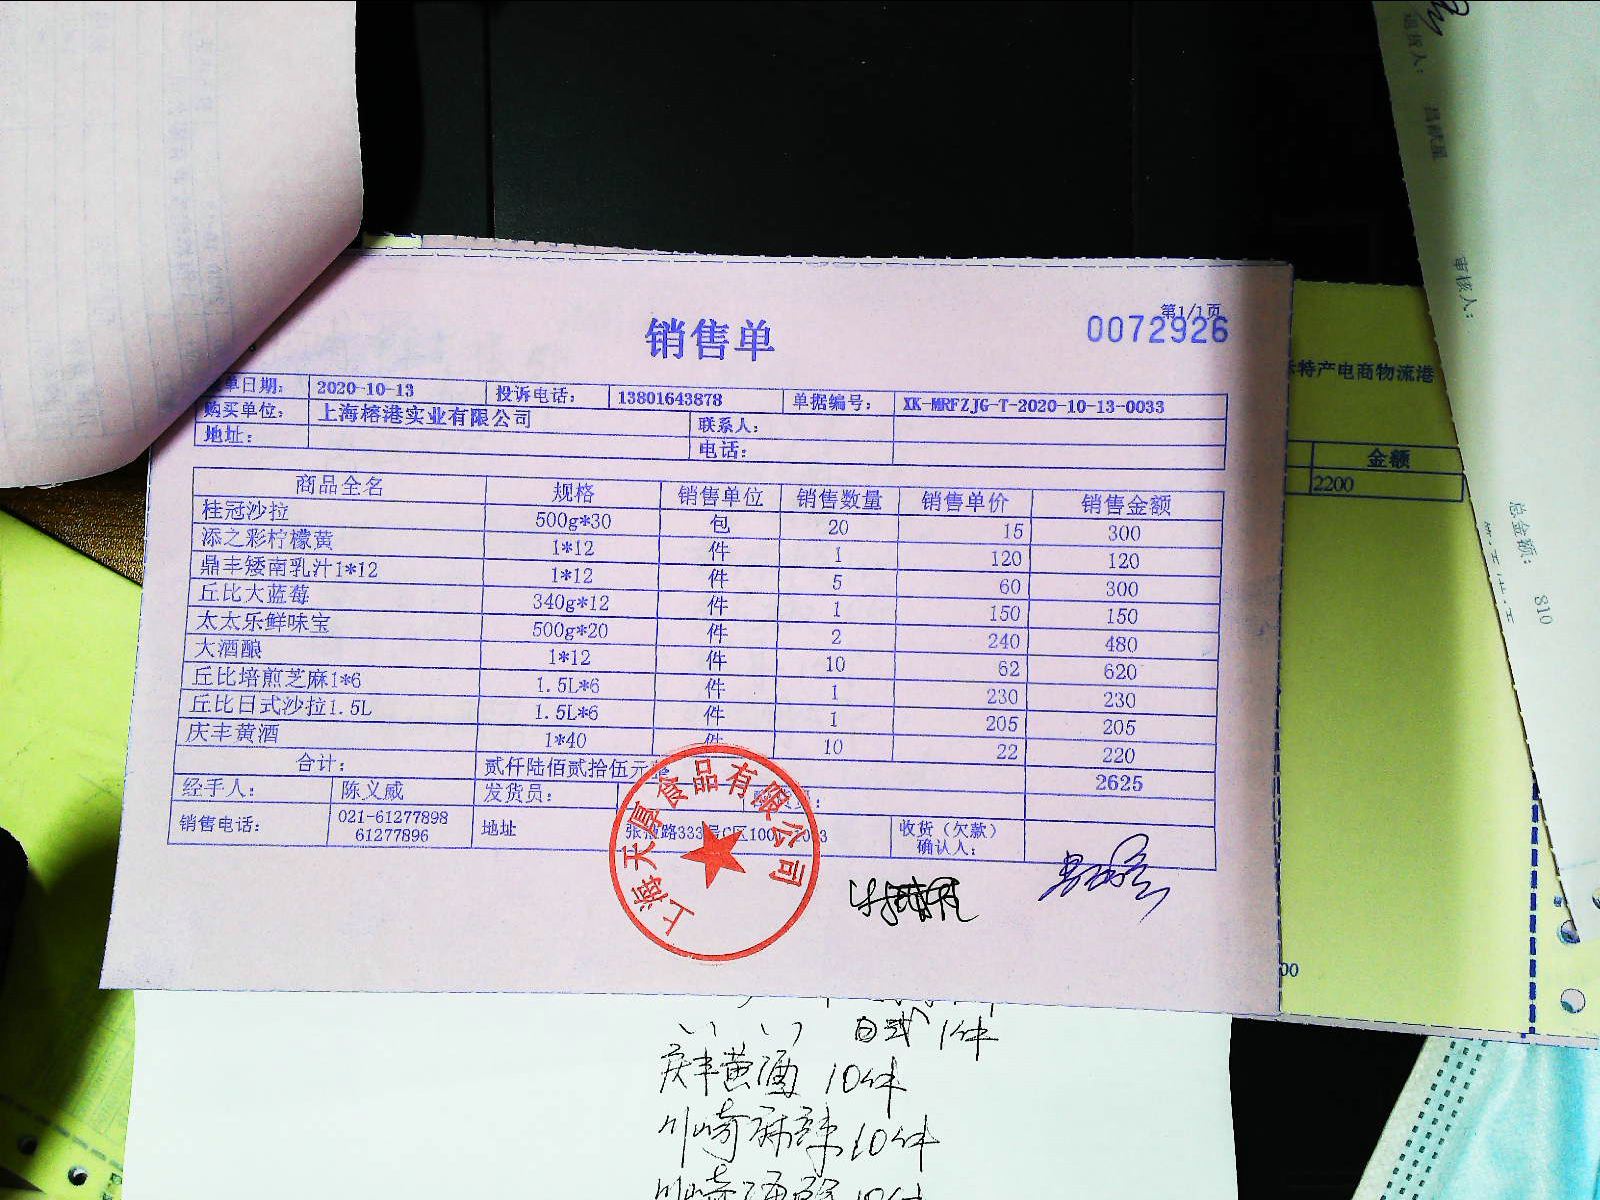 第1/1页
销售单
0072926
单日期： 2020-10-13 投诉电话： 13801643878 单据编号： XK-MRFZJG-T-2020-10-13-0033
购买单位： 上海榕港实业有限公司 联系人：
地址： 电话：
商品全名 规格 销售单位 销售数量 销售单价 销售金额
桂冠沙拉 500g*30 包 20 15 300
添之彩柠檬黄 1*12 件 1 120 120
鼎丰矮南乳汁1*12 1*12 件 5 60 300
丘比大蓝莓 340g*12 件 1 150 150
太太乐鲜味宝 500g*20 件 2 240 480
大酒酿 1*12 件 10 62 620
丘比培煎芝麻1*6 1.5L*6 件 1 230 230
丘比日式沙拉1.5L 1.5L*6 件 1 205 205
庆丰黄酒 1*40 件 10 22 220
合计： 贰仟陆佰贰拾伍元整 2625
经手人： 陈义威 发货员：
销售电话： 021-61277898 61277896 地址 路333号C区100 收货（欠款）确认人：
上海天厚食品有限公司
日式 1件
庆丰黄酒 10件
川崎麻辣 10件
川崎 10件
特产电商物流港
金额
2200
00
退货人：
审核人：
总金额： 810